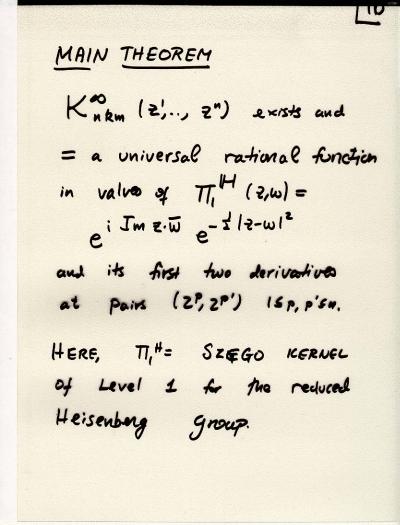 10
MAIN THEOREM
K^∞_{nkm} (z^1,.., z^n) exists and
= a universal rational function
in values of Π_1^H (z,w) =
e^{i Im z·w̄} e^{-½|z-w|²}
and its first two derivatives
at pairs (z^p, z^{p'}) 1≤p, p'≤n.
HERE, Π_1^H = SZEGO KERNEL
of Level 1 for the reduced
Heisenberg group.